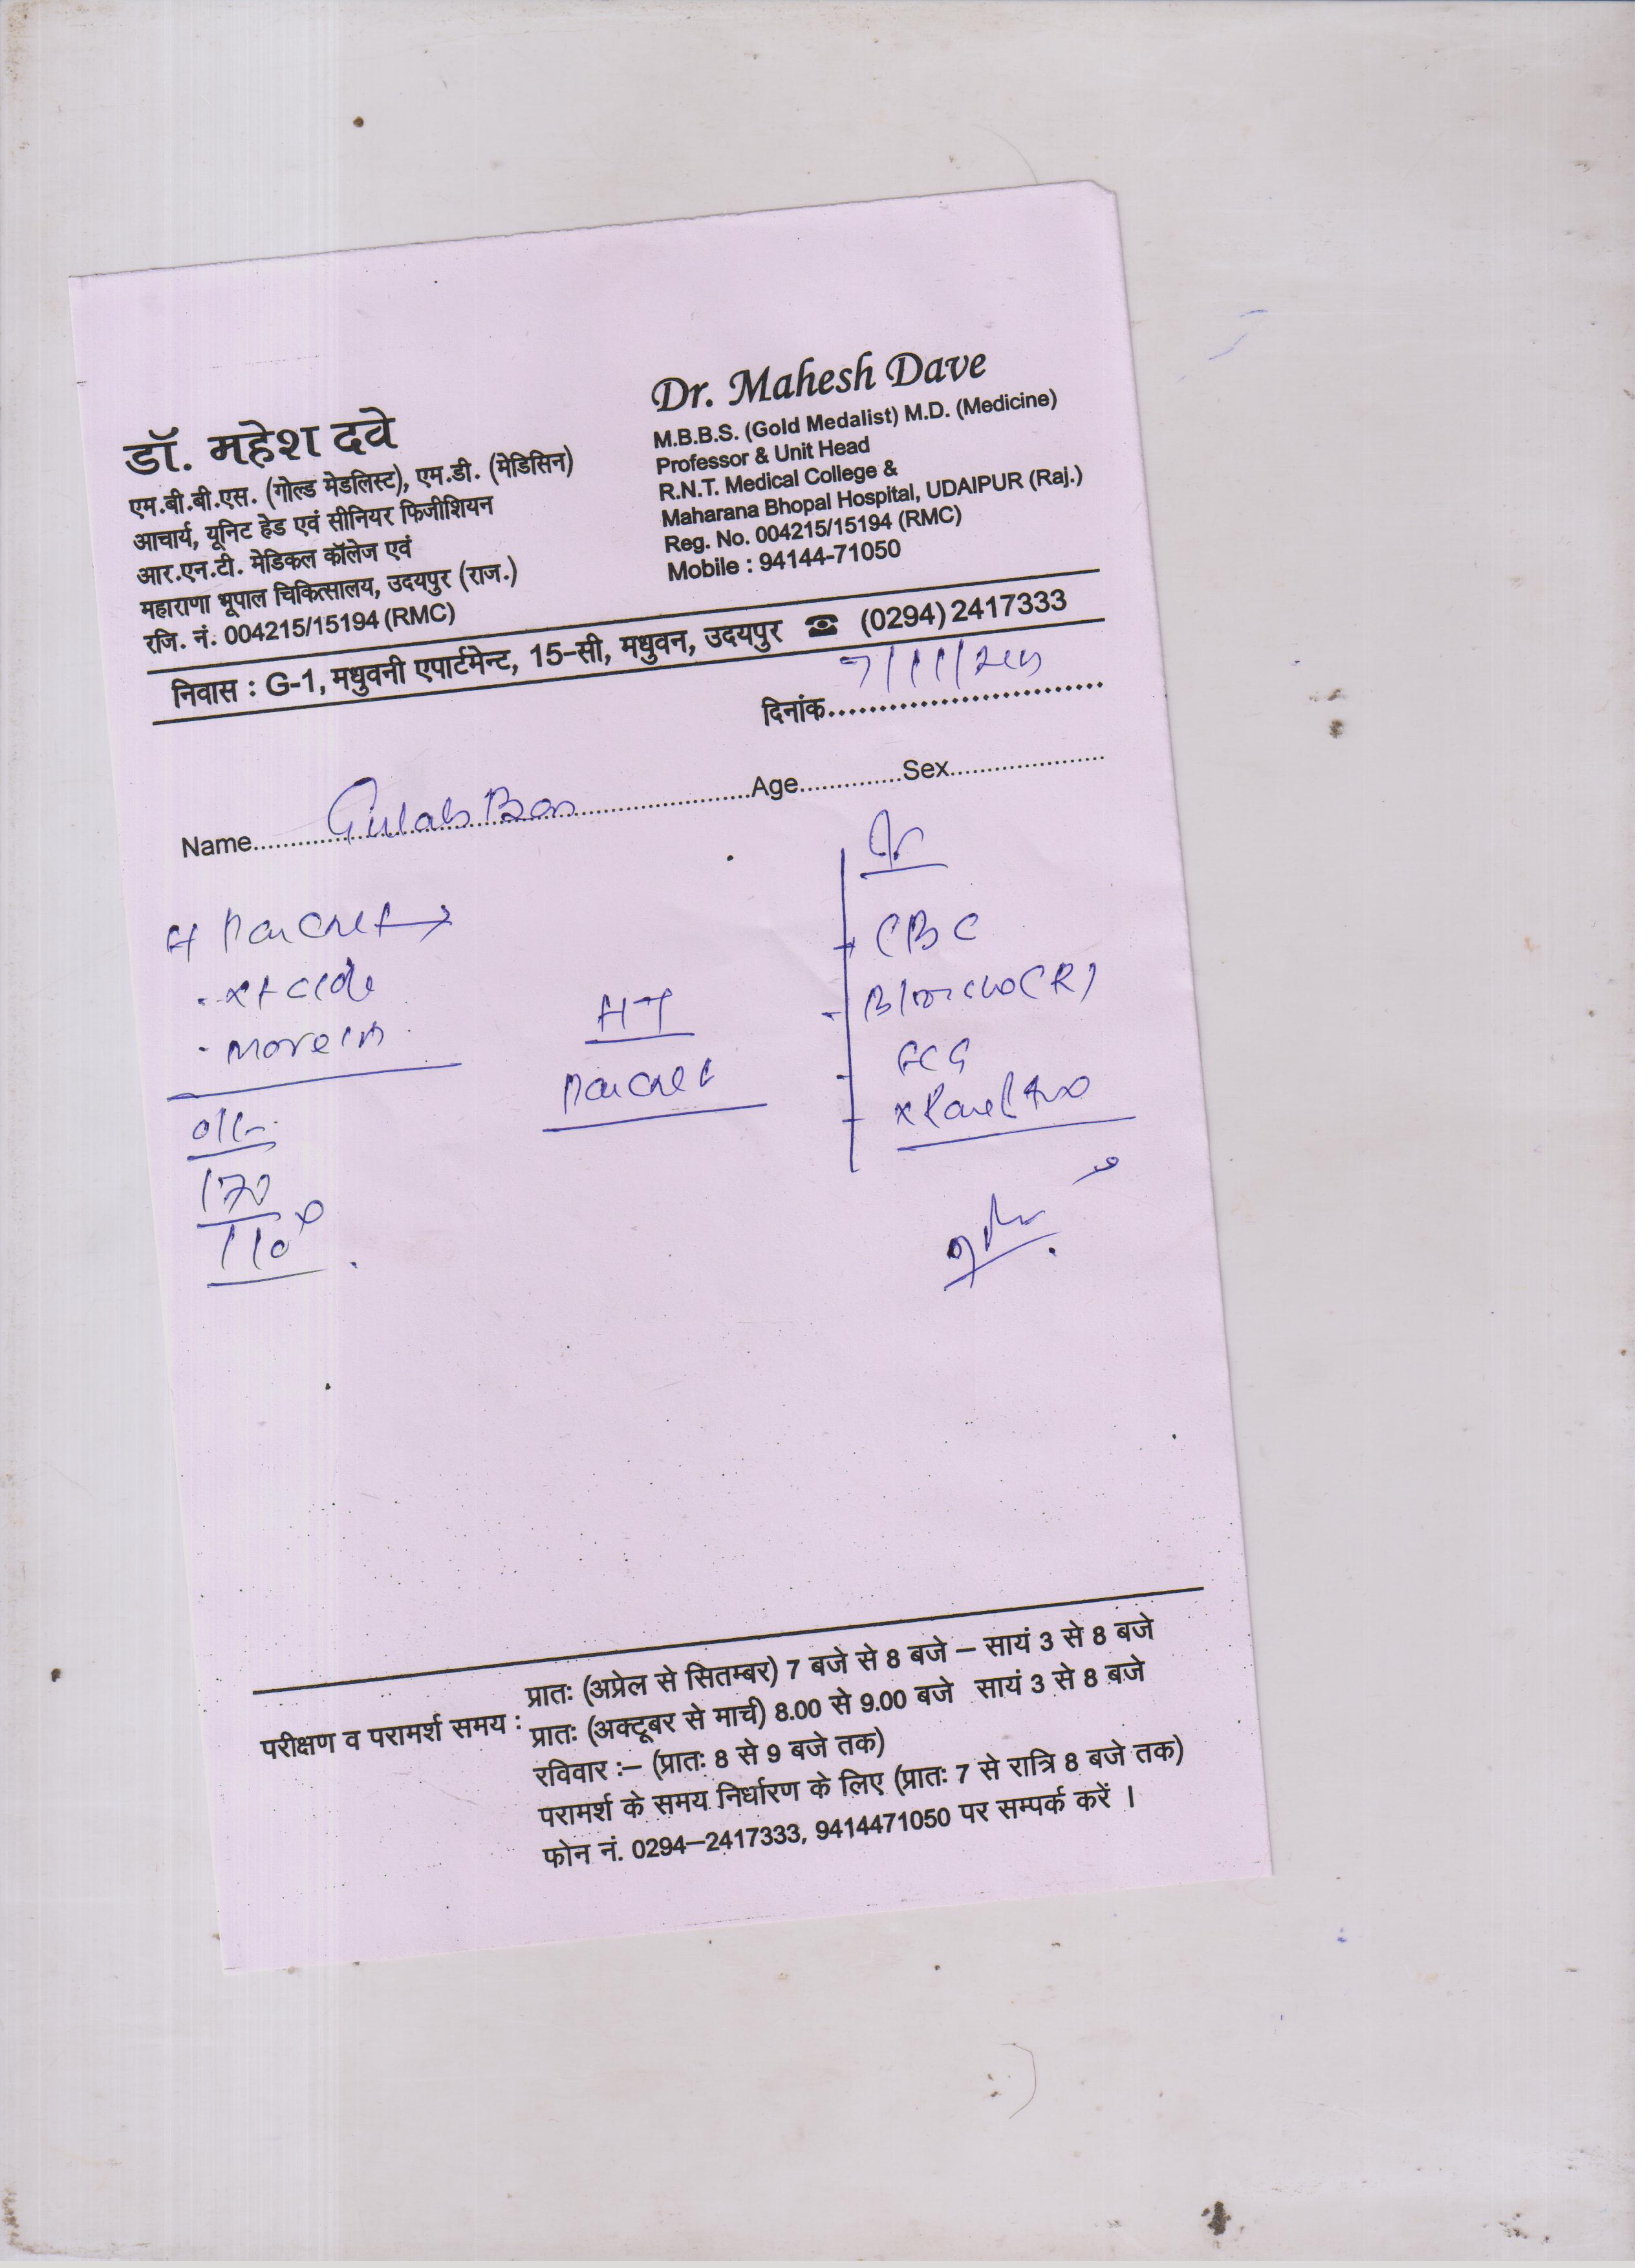 डॉ. महेश दवे
एम.बी.बी.एस. (गोल्ड मेडलिस्ट), एम.डी. (मेडिसिन)
आचार्य, यूनिट हेड एवं सीनियर फिजीशियन
आर.एन.टी. मेडिकल कॉलेज एवं
महाराणा भूपाल चिकित्सालय, उदयपुर (राज.)
रजि. नं. 004215/15194 (RMC)
Dr. Mahesh Dave
M.B.B.S. (Gold Medalist) M.D. (Medicine)
Professor & Unit Head
R.N.T. Medical College &
Maharana Bhopal Hospital, UDAIPUR (Raj.)
Reg. No. 004215/15194 (RMC)
Mobile : 94144-71050
निवास : G-1, मधुवनी एपार्टमेन्ट, 15-सी, मधुवन, उदयपुर ☎ (0294) 2417333
दिनांक 7/11/
Name Gulab Age Sex
HT
170
110
CBC
ECG
परीक्षण व परामर्श समय :
प्रातः (अप्रेल से सितम्बर) 7 बजे से 8 बजे – सायं 3 से 8 बजे
प्रातः (अक्टूबर से मार्च) 8.00 से 9.00 बजे सायं 3 से 8 बजे
रविवार :– (प्रातः 8 से 9 बजे तक)
परामर्श के समय निर्धारण के लिए (प्रातः 7 से रात्रि 8 बजे तक)
फोन नं. 0294–2417333, 9414471050 पर सम्पर्क करें ।